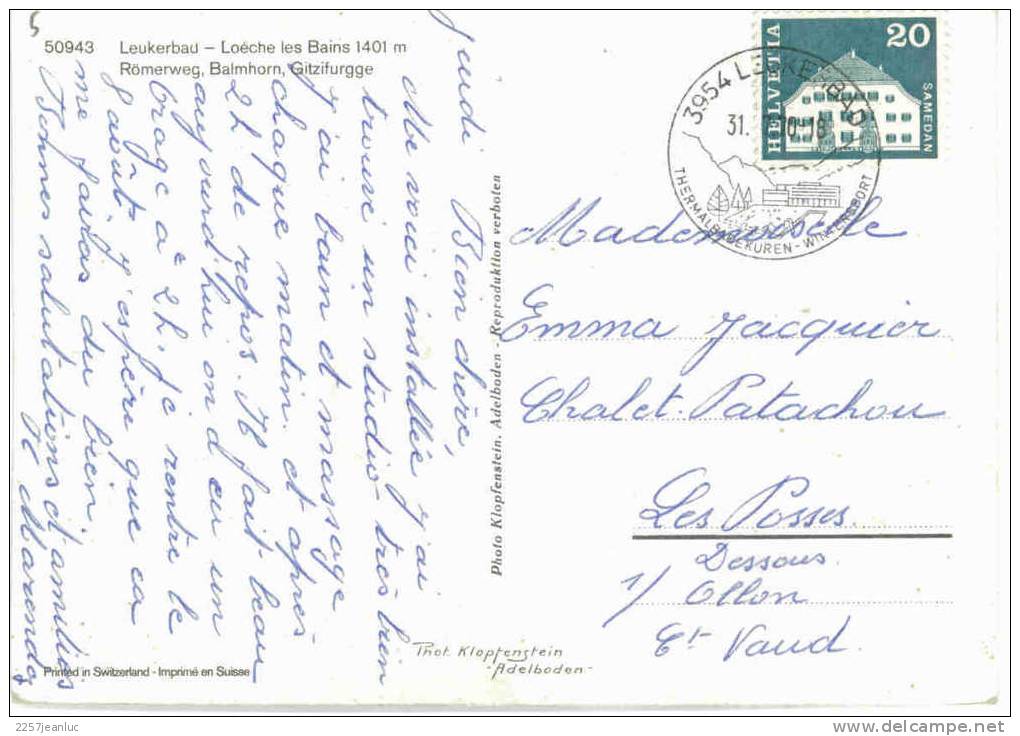 5
50943 Leukerbad – Loèche les Bains 1401 m
Römerweg, Balmhorn, Gitzifurgge
jeudi
Bien chère,
Me voici installée j'ai
trouvé un studio très bien
j'ai bain et massage
chaque matin. et après
2 h de repos. Il fait beau
aujourd'hui on d eu un
orage a 2 h. je rentre le
8 août, j'espère que ca
me faira du bien.
Bonnes salutations et amitiés
Photo Klopfenstein, Adelboden - Reproduktion verboten
HELVETIA
20
SAMEDAN
3954 LEUKERBAD
31. 70-18
THERMALBADEKUREN - WINTERSPORT
Mademoiselle
Emma Jacquier
Chalet. Patachou
Les Posses.
Dessous
1/ Ollon
Ct. Vaud
Phot. Klopfenstein
-Adelboden-
Printed in Switzerland - Imprimé en Suisse
2257jeanluc
www.delcampe.net